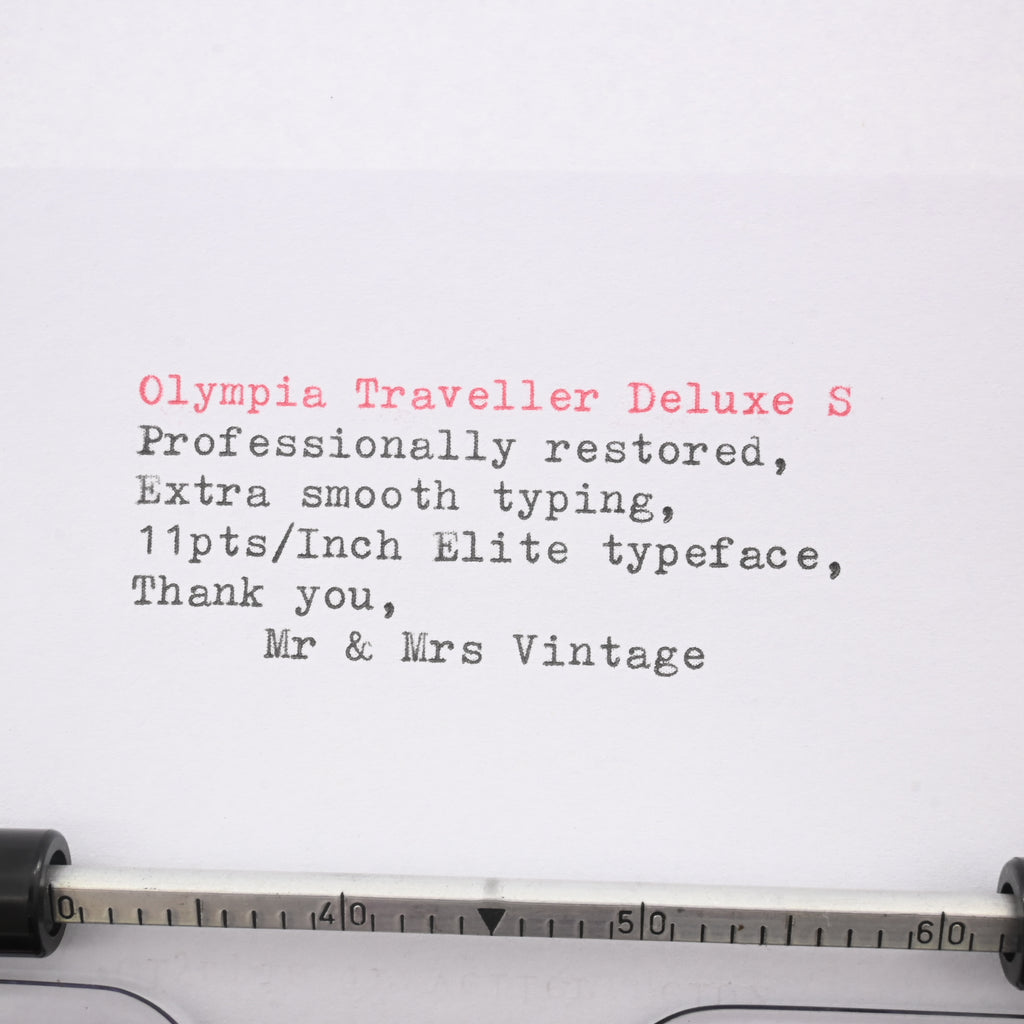 Olympia Traveller Deluxe S
Professionally restored,
Extra smooth typing,
11pts/Inch Elite typeface,
Thank you,
Mr & Mrs Vintage
0 40 50 60